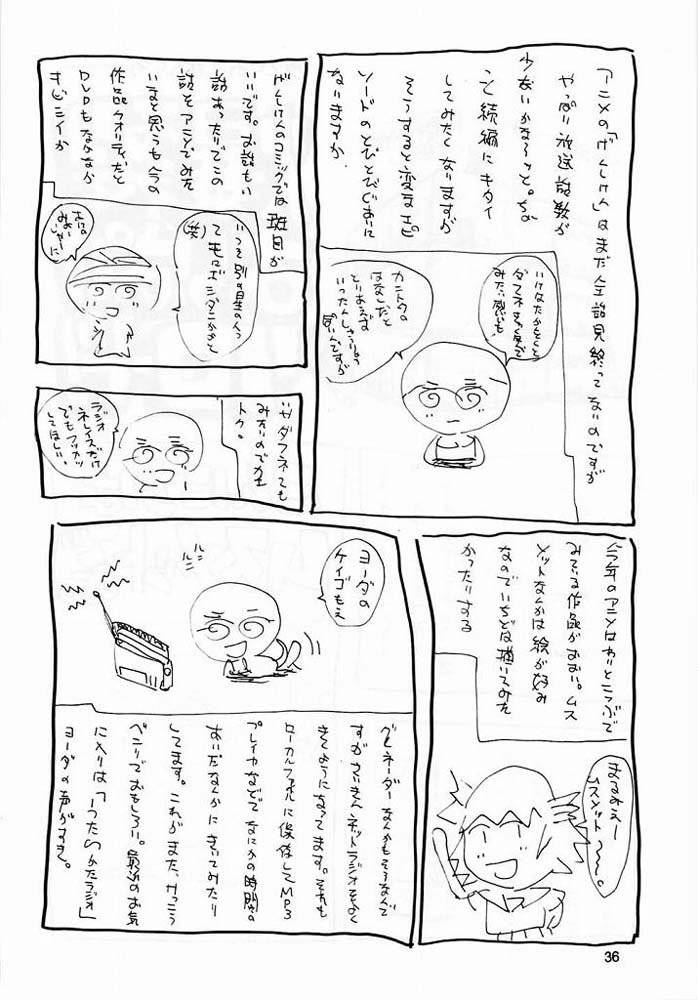 「アニメの「げんしけん」はまだ全話見終ってないのですが
やっぱり放送話数が
少ないかな〜っと。ちな
こと続編にキタイ
してみたくなりますが
そうすると変なエピ
ソードのとびとびぐあいに
なりますか
みたい感いも
カニトタの
はなしだと
とりあえず
いったんしゅうりょう
げんしけんのコミックでは班目が
いいです。お話もいい
話あったりでこの
話をアニメでみた
いなと思うも今の
作品クオリティだと
DVDもなかなか
キビシイか
いっそ別の星の人っ
(笑)
いやダフネても
みたいのでカエ
トク。
ラジオ
ネレイズだけ
でもフッカツ
してほしい。
今年のアニメはわりとこつぶで
みている作品がおおい。ムス
メットなんかは絵が好み
なのでいちどは描いてみた
かったりする
まるみえー
ムスメット〜。
ヨーダの
ケイゴもえ
グレネーダーなんかもそうなんで
すがさいきんネットラジオをよく
きくようになってます。それも
ローカルファイルに保存してMP3
プレイヤなどでなにかの時間の
あいだなんかにきいてみたり
してます。これがまた、けっこう
ベンリでおもしろい。最近のお気
に入りは「うたわかたラジオ」
ヨーダの声がすき。
36